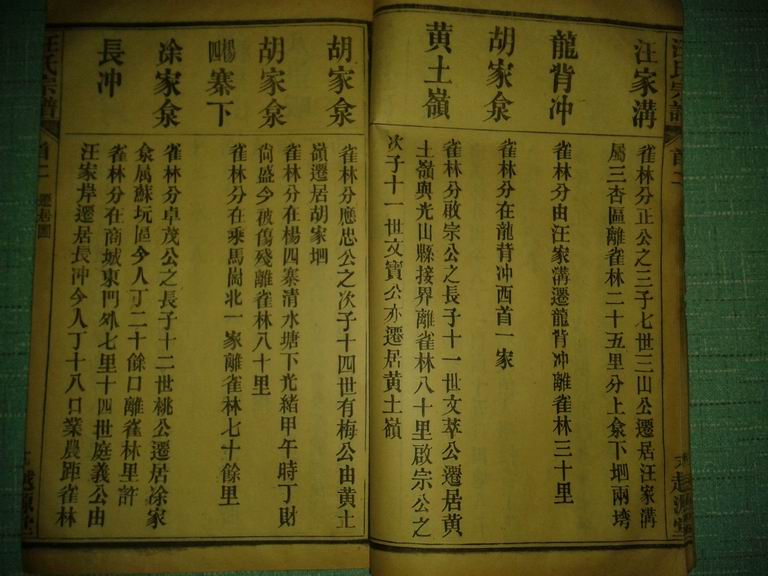 汪家溝
雀林分正公之三子七世三山公遷居汪家溝
屬三杏區離雀林二十五里分上汆下垇兩塆
龍背冲
雀林分由汪家溝遷龍背冲離雀林三十里
胡家汆
雀林分在龍背冲西首一家
黄土嶺
雀林分啟宗公之長子十一世文萃公遷居黄
土嶺與光山縣接界離雀林八十里啟宗公之
次子十一世文寶公亦遷居黄土嶺
胡家汆
雀林分應忠公之次子十四世有梅公由黄土
嶺遷居胡家垇
胡家汆
雀林分在楊四寨清水塘下光緒甲午時丁財
尙盛今被傷殘離雀林八十里
楊四寨下
雀林分在乘馬崗北一家離雀林七十餘里
凃家汆
雀林分卓茂公之長子十二世桃公遷居凃家
汆属蘇玩區今人丁二十餘口離雀林里許
長冲
雀林分在商城東門外七里十四世庭義公由
汪家岸遷居長冲今人丁十八口業農距雀林
汪氏宗譜
首二
遷居圖
越源堂